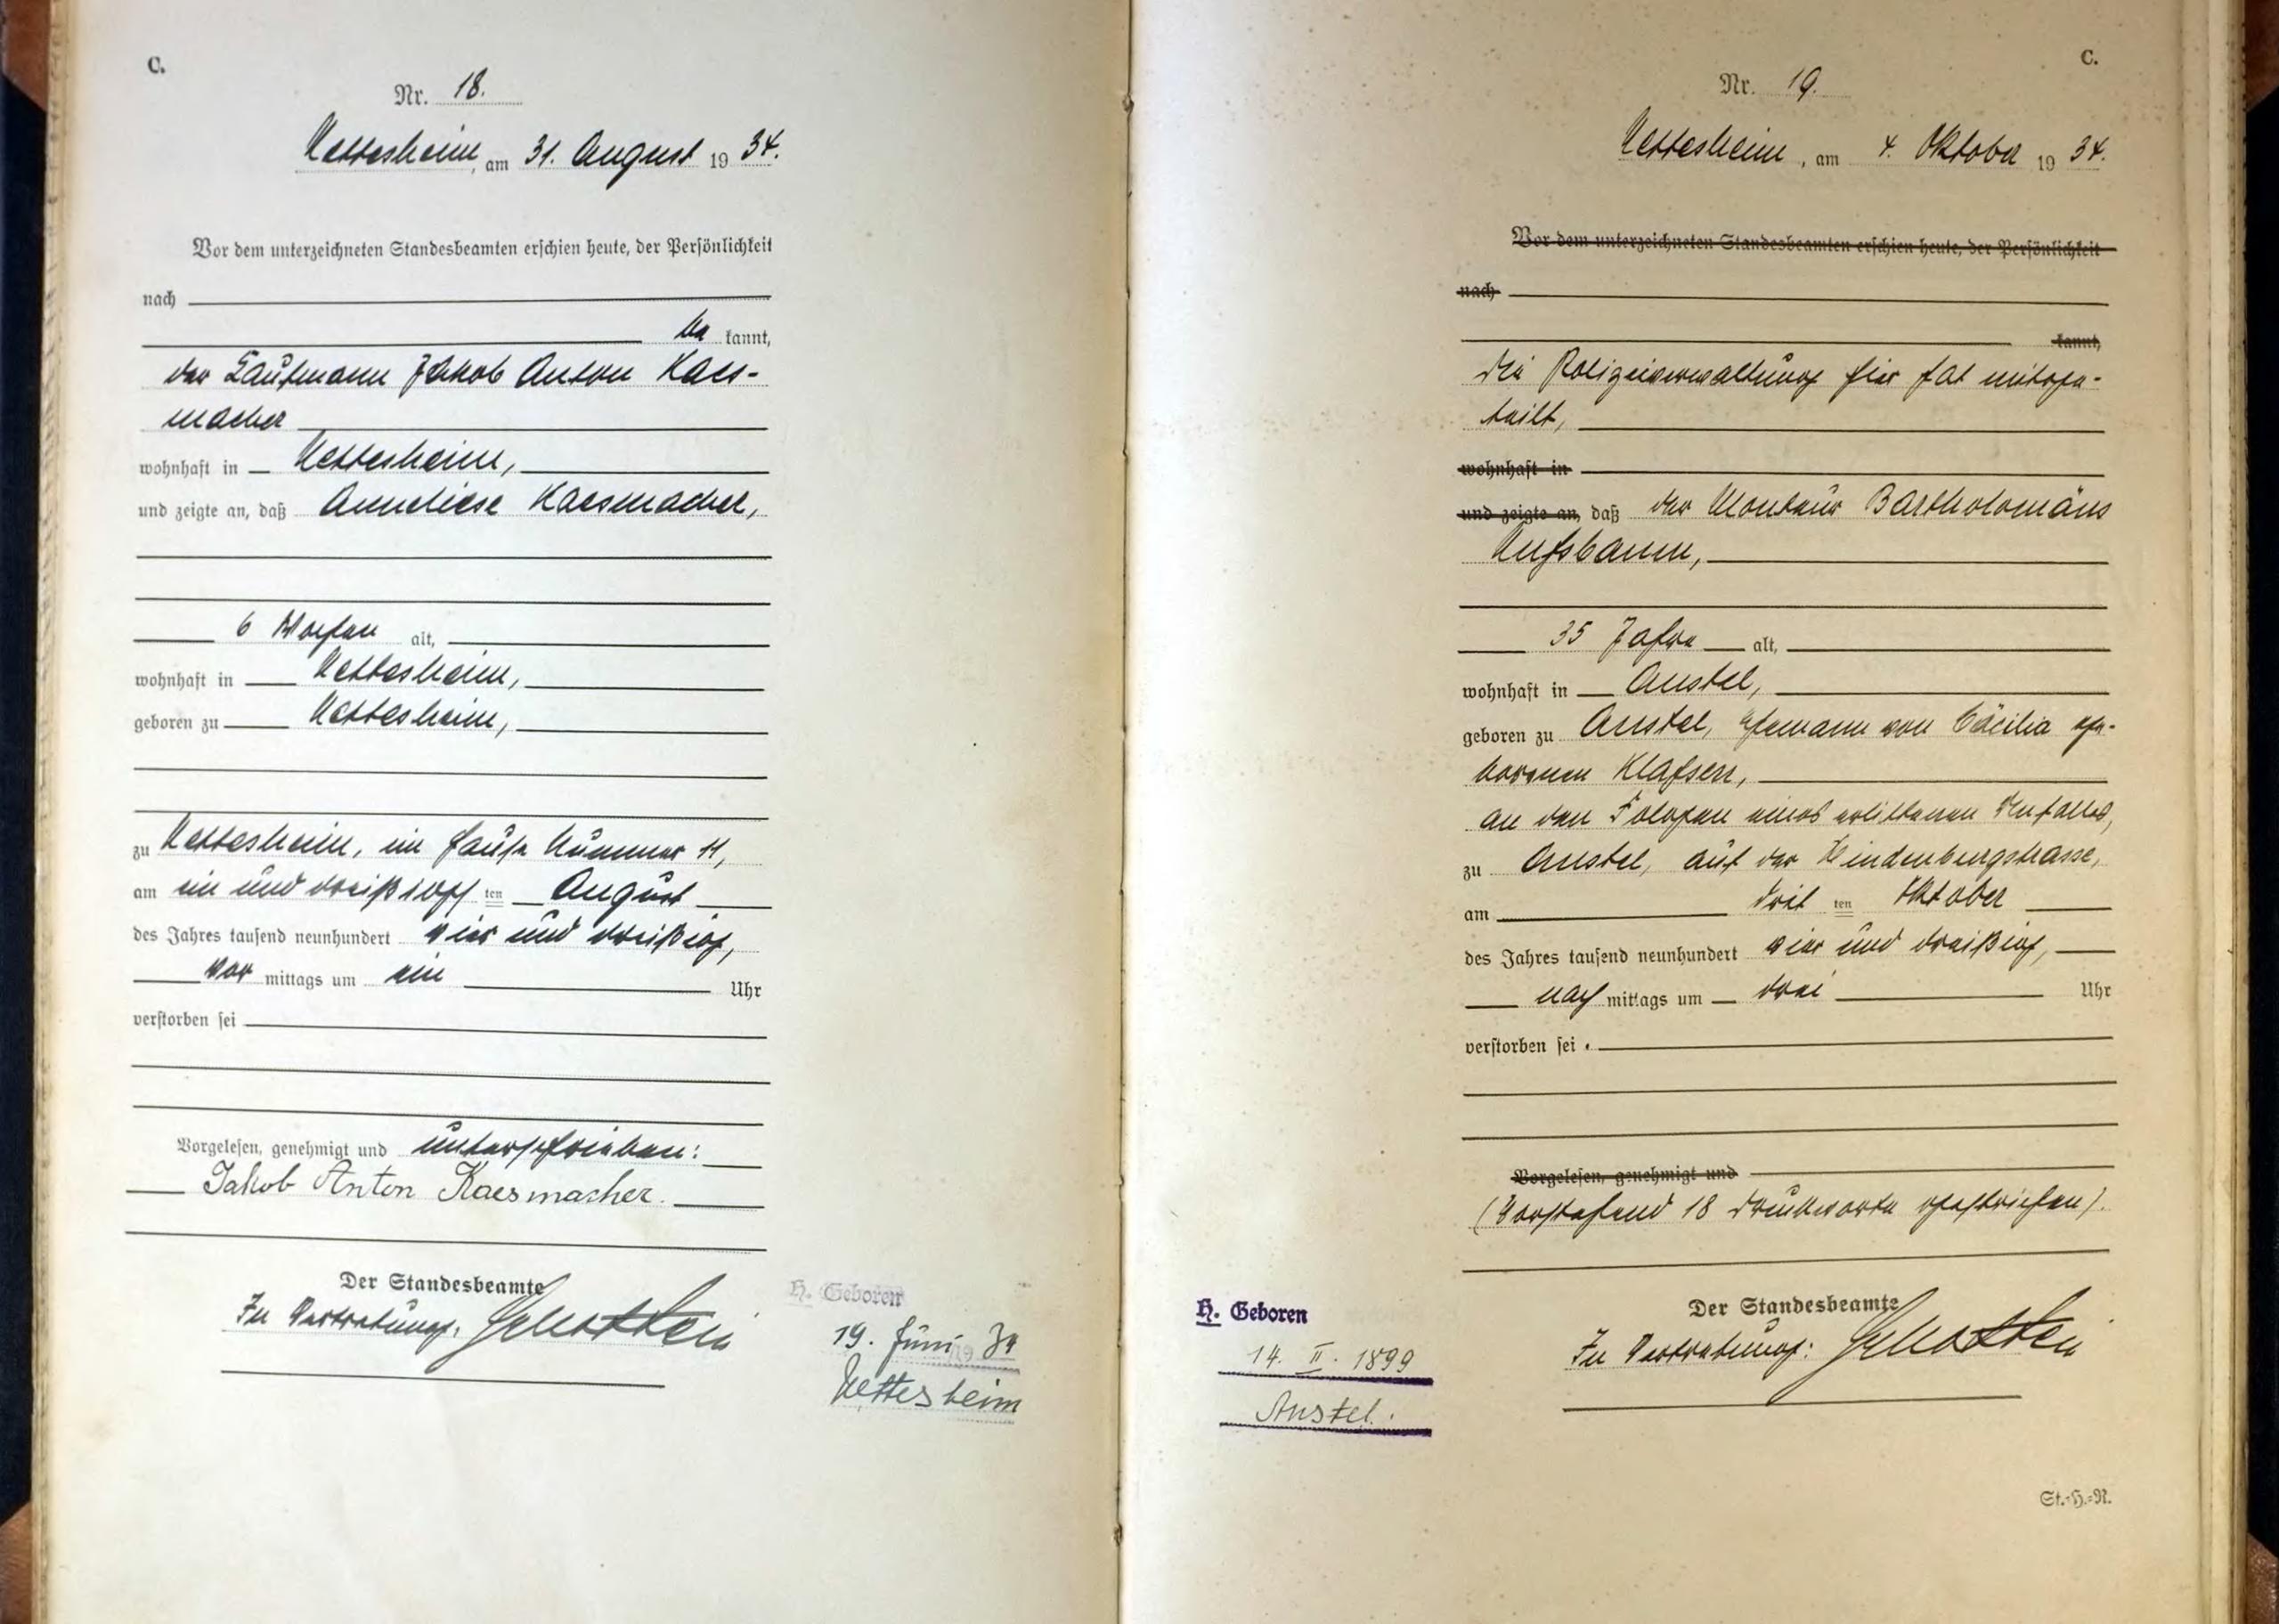 C.
Nr. 18.
Nettesheim, am 31. August 19 34.
Vor dem unterzeichneten Standesbeamten erschien heute, der Persönlichkeit
nach
be kannt,
der Kaufmann Jakob Anton Kaes-
macher
wohnhaft in Nettesheim,
und zeigte an, daß Anneliese Kaesmacher,
6 Wochen alt,
wohnhaft in Nettesheim,
geboren zu Nettesheim,
zu Nettesheim, im Hause Nummer 11,
am ein und dreißigsten August
des Jahres tausend neunhundert vier und dreißig,
vor mittags um ein Uhr
verstorben sei
Vorgelesen, genehmigt und unterschrieben:
Jakob Anton Kaesmacher.
Der Standesbeamte
In Vertretung:
H. Geboren
19. Juni 19 34
Nettesheim
C.
Nr. 19.
Nettesheim, am 4. Oktober 19 34.
Vor dem unterzeichneten Standesbeamten erschien heute, der Persönlichkeit
nach
kannt,
Die Polizeiverwaltung hier hat mitge-
teilt,
wohnhaft in
und zeigte an, daß der Monteur Bartholomäus
Nußbaum,
35 Jahre alt,
wohnhaft in Anstel,
geboren zu Anstel, Ehemann von Cäcilia ge-
borenen Klassen,
an den Folgen eines erlittenen Unfalles,
zu Anstel, auf der Hindenburgstrasse,
am dritten Oktober
des Jahres tausend neunhundert vier und dreißig,
nach mittags um drei Uhr
verstorben sei.
Vorgelesen, genehmigt und
(Vorstehend 18 Druckworte gestrichen).
Der Standesbeamte
In Vertretung:
H. Geboren
14. II. 1899
Anstel.
St.-H.-N.